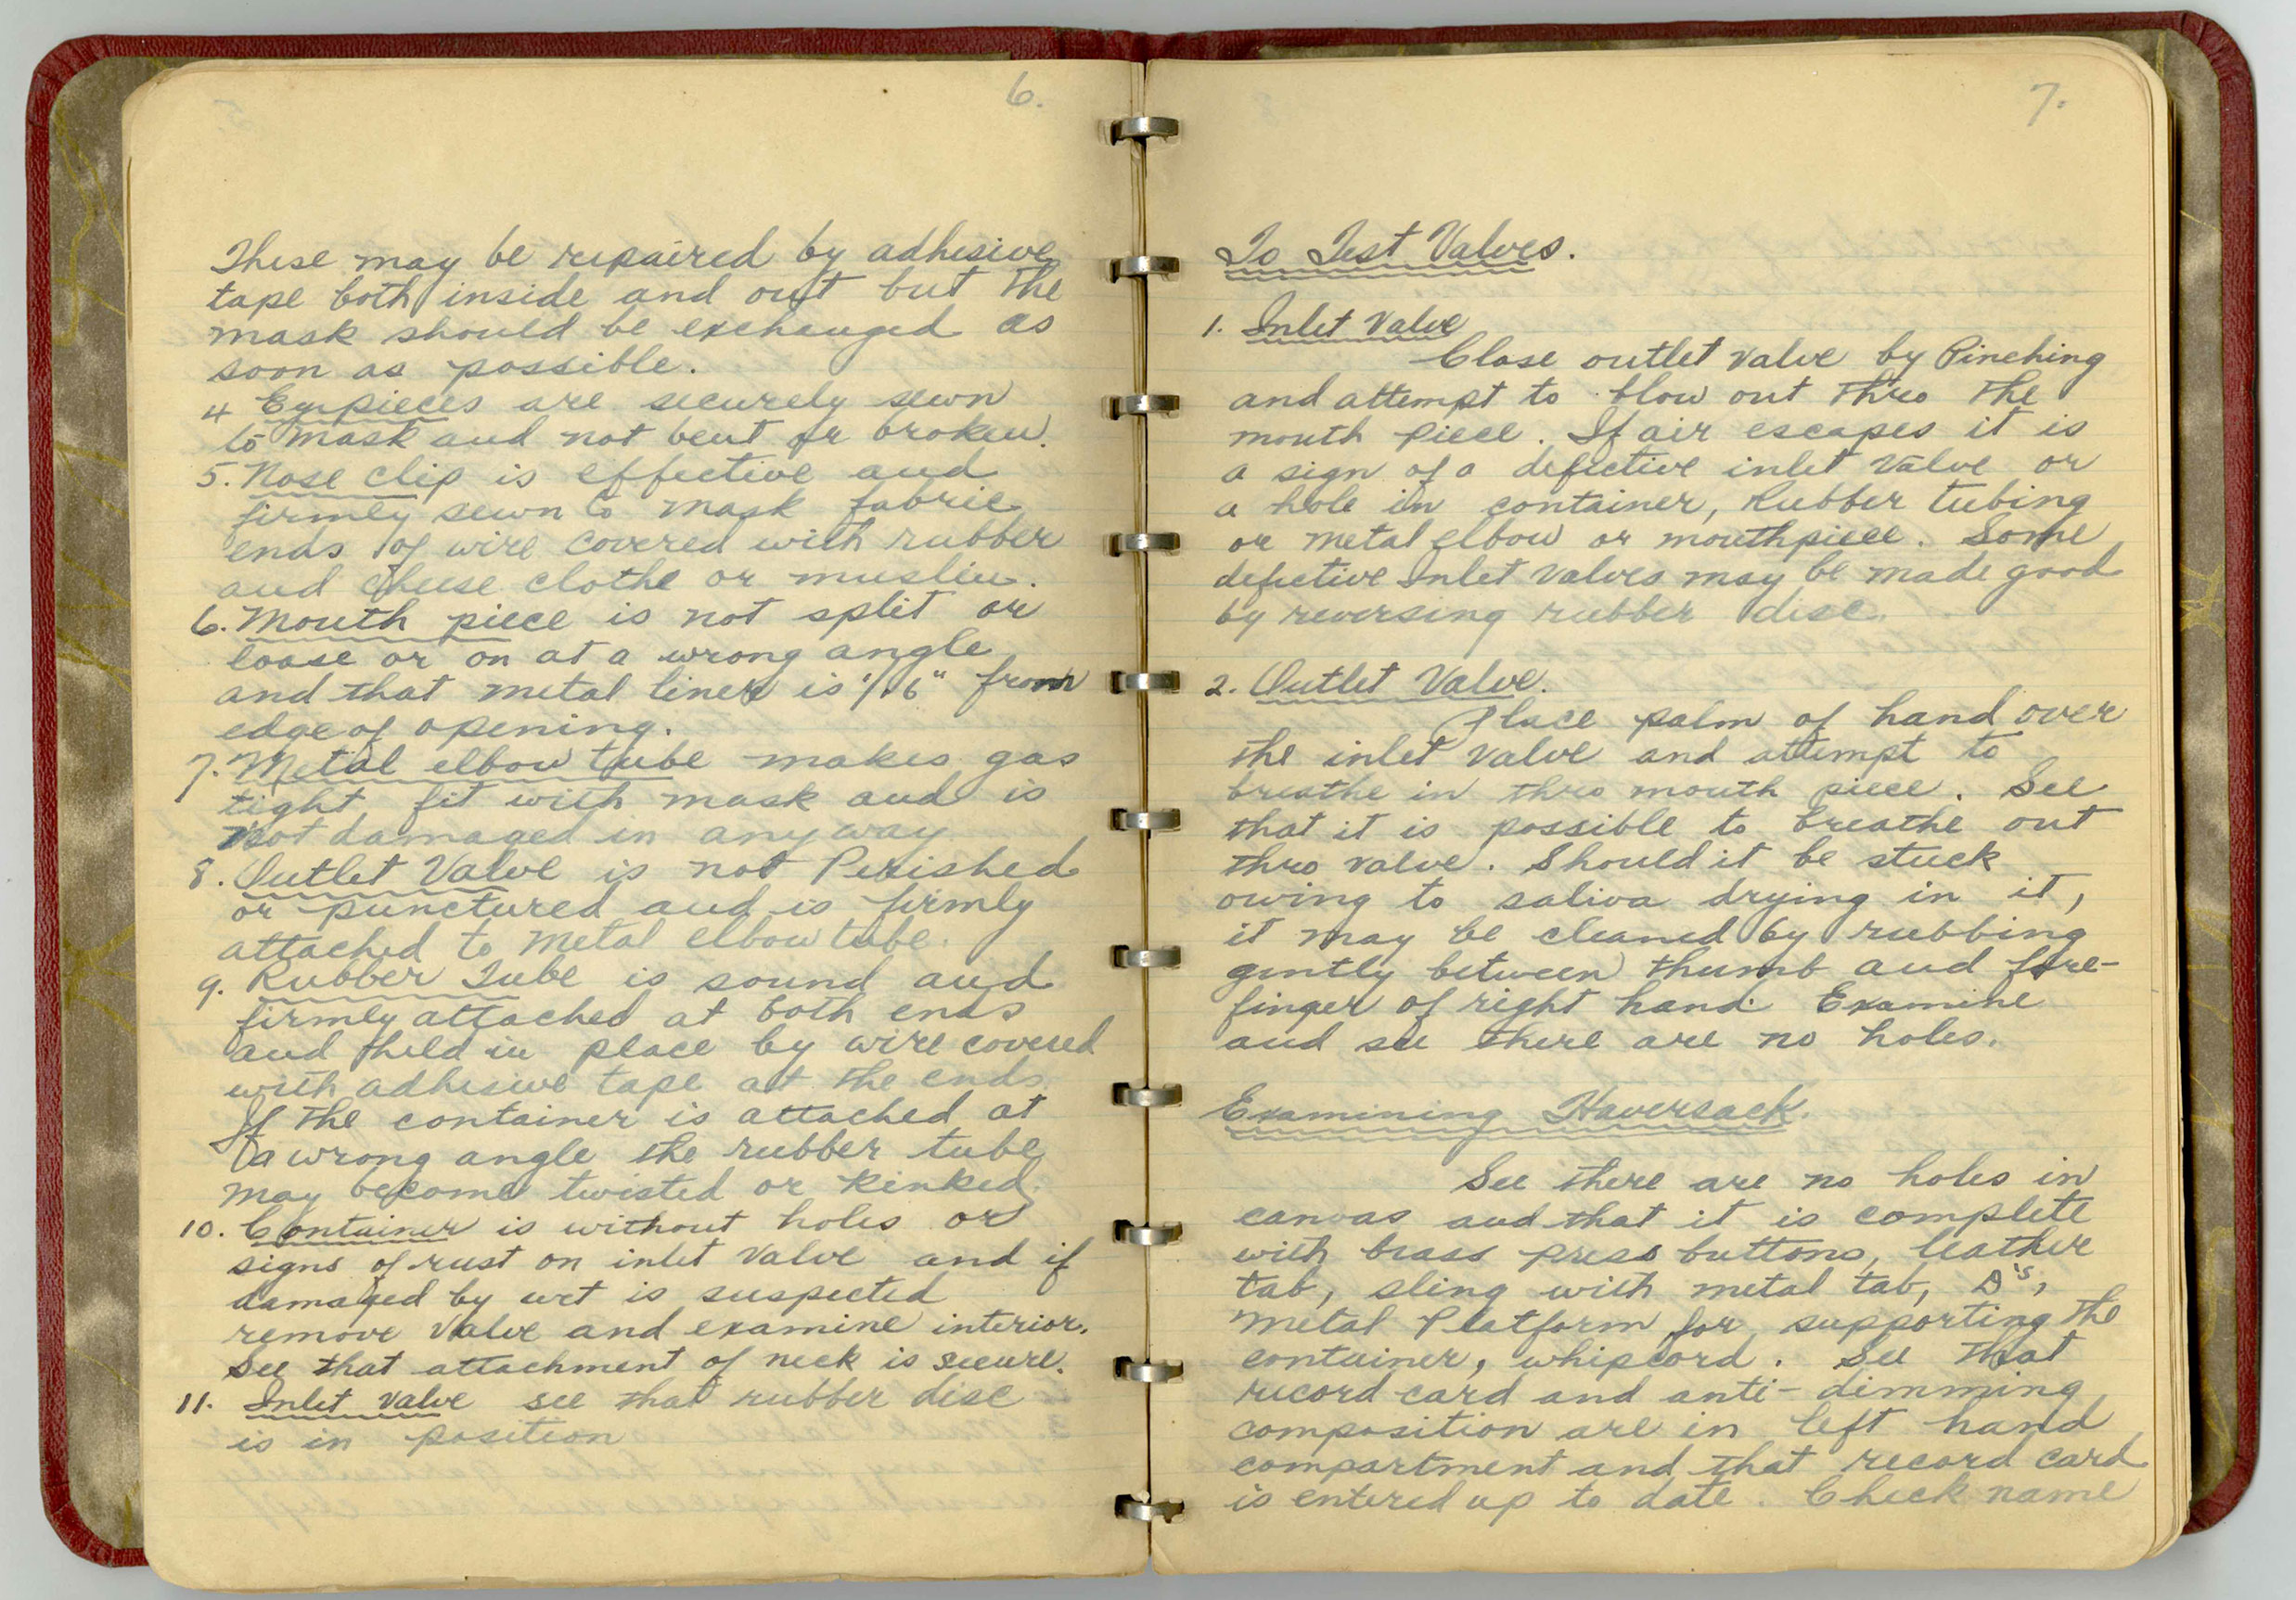 6.
These may be repaired by adhesive
tape both inside and out but the
mask should be exchanged as
soon as possible.
4 Eyepieces are securely sewn
to mask and not bent or broken.
5. Nose clip is effective and
firmly sewn to mask fabric
ends of wire covered with rubber
and cheese clothe or muslin.
6. Mouth piece is not split or
loose or on at a wrong angle
and that metal liner is 1/16" from
edge of opening.
7. Metal elbow tube makes gas
tight fit with mask and is
not damaged in any way
8. Outlet Valve is not Perished
or punctured and is firmly
attached to metal elbow tube.
9. Rubber Tube is sound and
firmly attached at both ends
and held in place by wire covered
with adhesive tape at the ends.
If the container is attached at
a wrong angle the rubber tube
may become twisted or kinked.
10. Container is without holes or
signs of rust on inlet Valve and if
damaged by wet is suspected
remove Valve and examine interior.
See that attachment of neck is secure.
11. Inlet Valve see that rubber disc
is in position
7.
To Test Valves.
1. Inlet Valve
Close outlet valve by Pinching
and attempt to blow out thro the
mouth piece. If air escapes it is
a sign of a defective inlet valve or
a hole in container, Rubber tubing
or metal elbow or mouthpiece. Some
defective Inlet Valves may be made good
by reversing rubber disc.
2. Outlet Valve.
Place palm of hand over
the inlet Valve and attempt to
breathe in thro mouth piece. See
that it is possible to breathe out
thro valve. Should it be stuck
owing to saliva drying in it,
it may be cleaned by rubbing
gently between thumb and fore-
finger of right hand. Examine
and see there are no holes.
Examining Haversack.
See there are no holes in
canvas and that it is complete
with brass press buttons, leather
tab, sling with metal tab, D's,
metal Platform for supporting the
container, whipcord. See that
record card and anti-dimming
composition are in left hand
compartment and that record card
is entered up to date. Check name